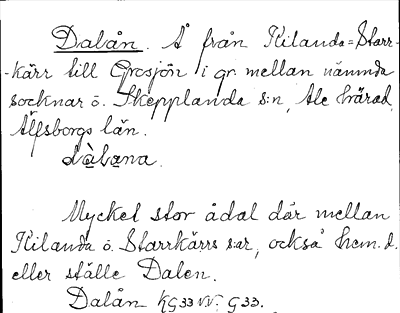 Dalån. Å från Kilanda=Starr-
-kärr till Grosjön i gr. mellan nämnda
socknar ö. Skepplanda s:n, Ale härad,
Älfsborgs län.
dàlana
Mycket stor ådal där mellan
Kilanda ö. Starrkärrs s:ar, också hem. d.
eller ställe Dalen.
Dalån KG33 NV. G33.